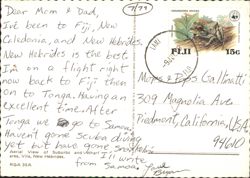 Dear Mom & Dad,
7/79
I've been to Fiji, New
Caledonia, and New Hebrides.
New Hebrides is the best
I'm on a flight right
now back to Fiji then
on to Tonga. Having an
excellent time. After
Tonga we go to Samoa.
Haven't gone scuba diving
yet but have gone
I'll write
from Samoa.
Love
Bryan
Aerial View of Suburbs and
area, Vila, New Hebrides.
FIJI
15c
Moms & Dads Gallinatti
309 Magnolia Ave
Piedmont, California, USA
94610